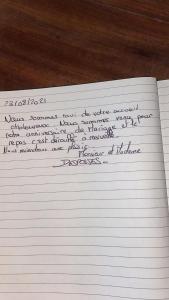 23/08/2021
Nous sommes ravi de votre accueil
chaleureux. Nous sommes venu pour
notre anniversaire de Mariage et le
repas c'est déroulé à merveille.
Nous reviendrons avec plaisir
Monsieur et Madame